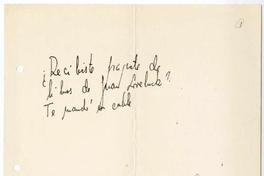 ¿Recibiste paquete de
libros de Juan Loveluck?
Te mandé un cable